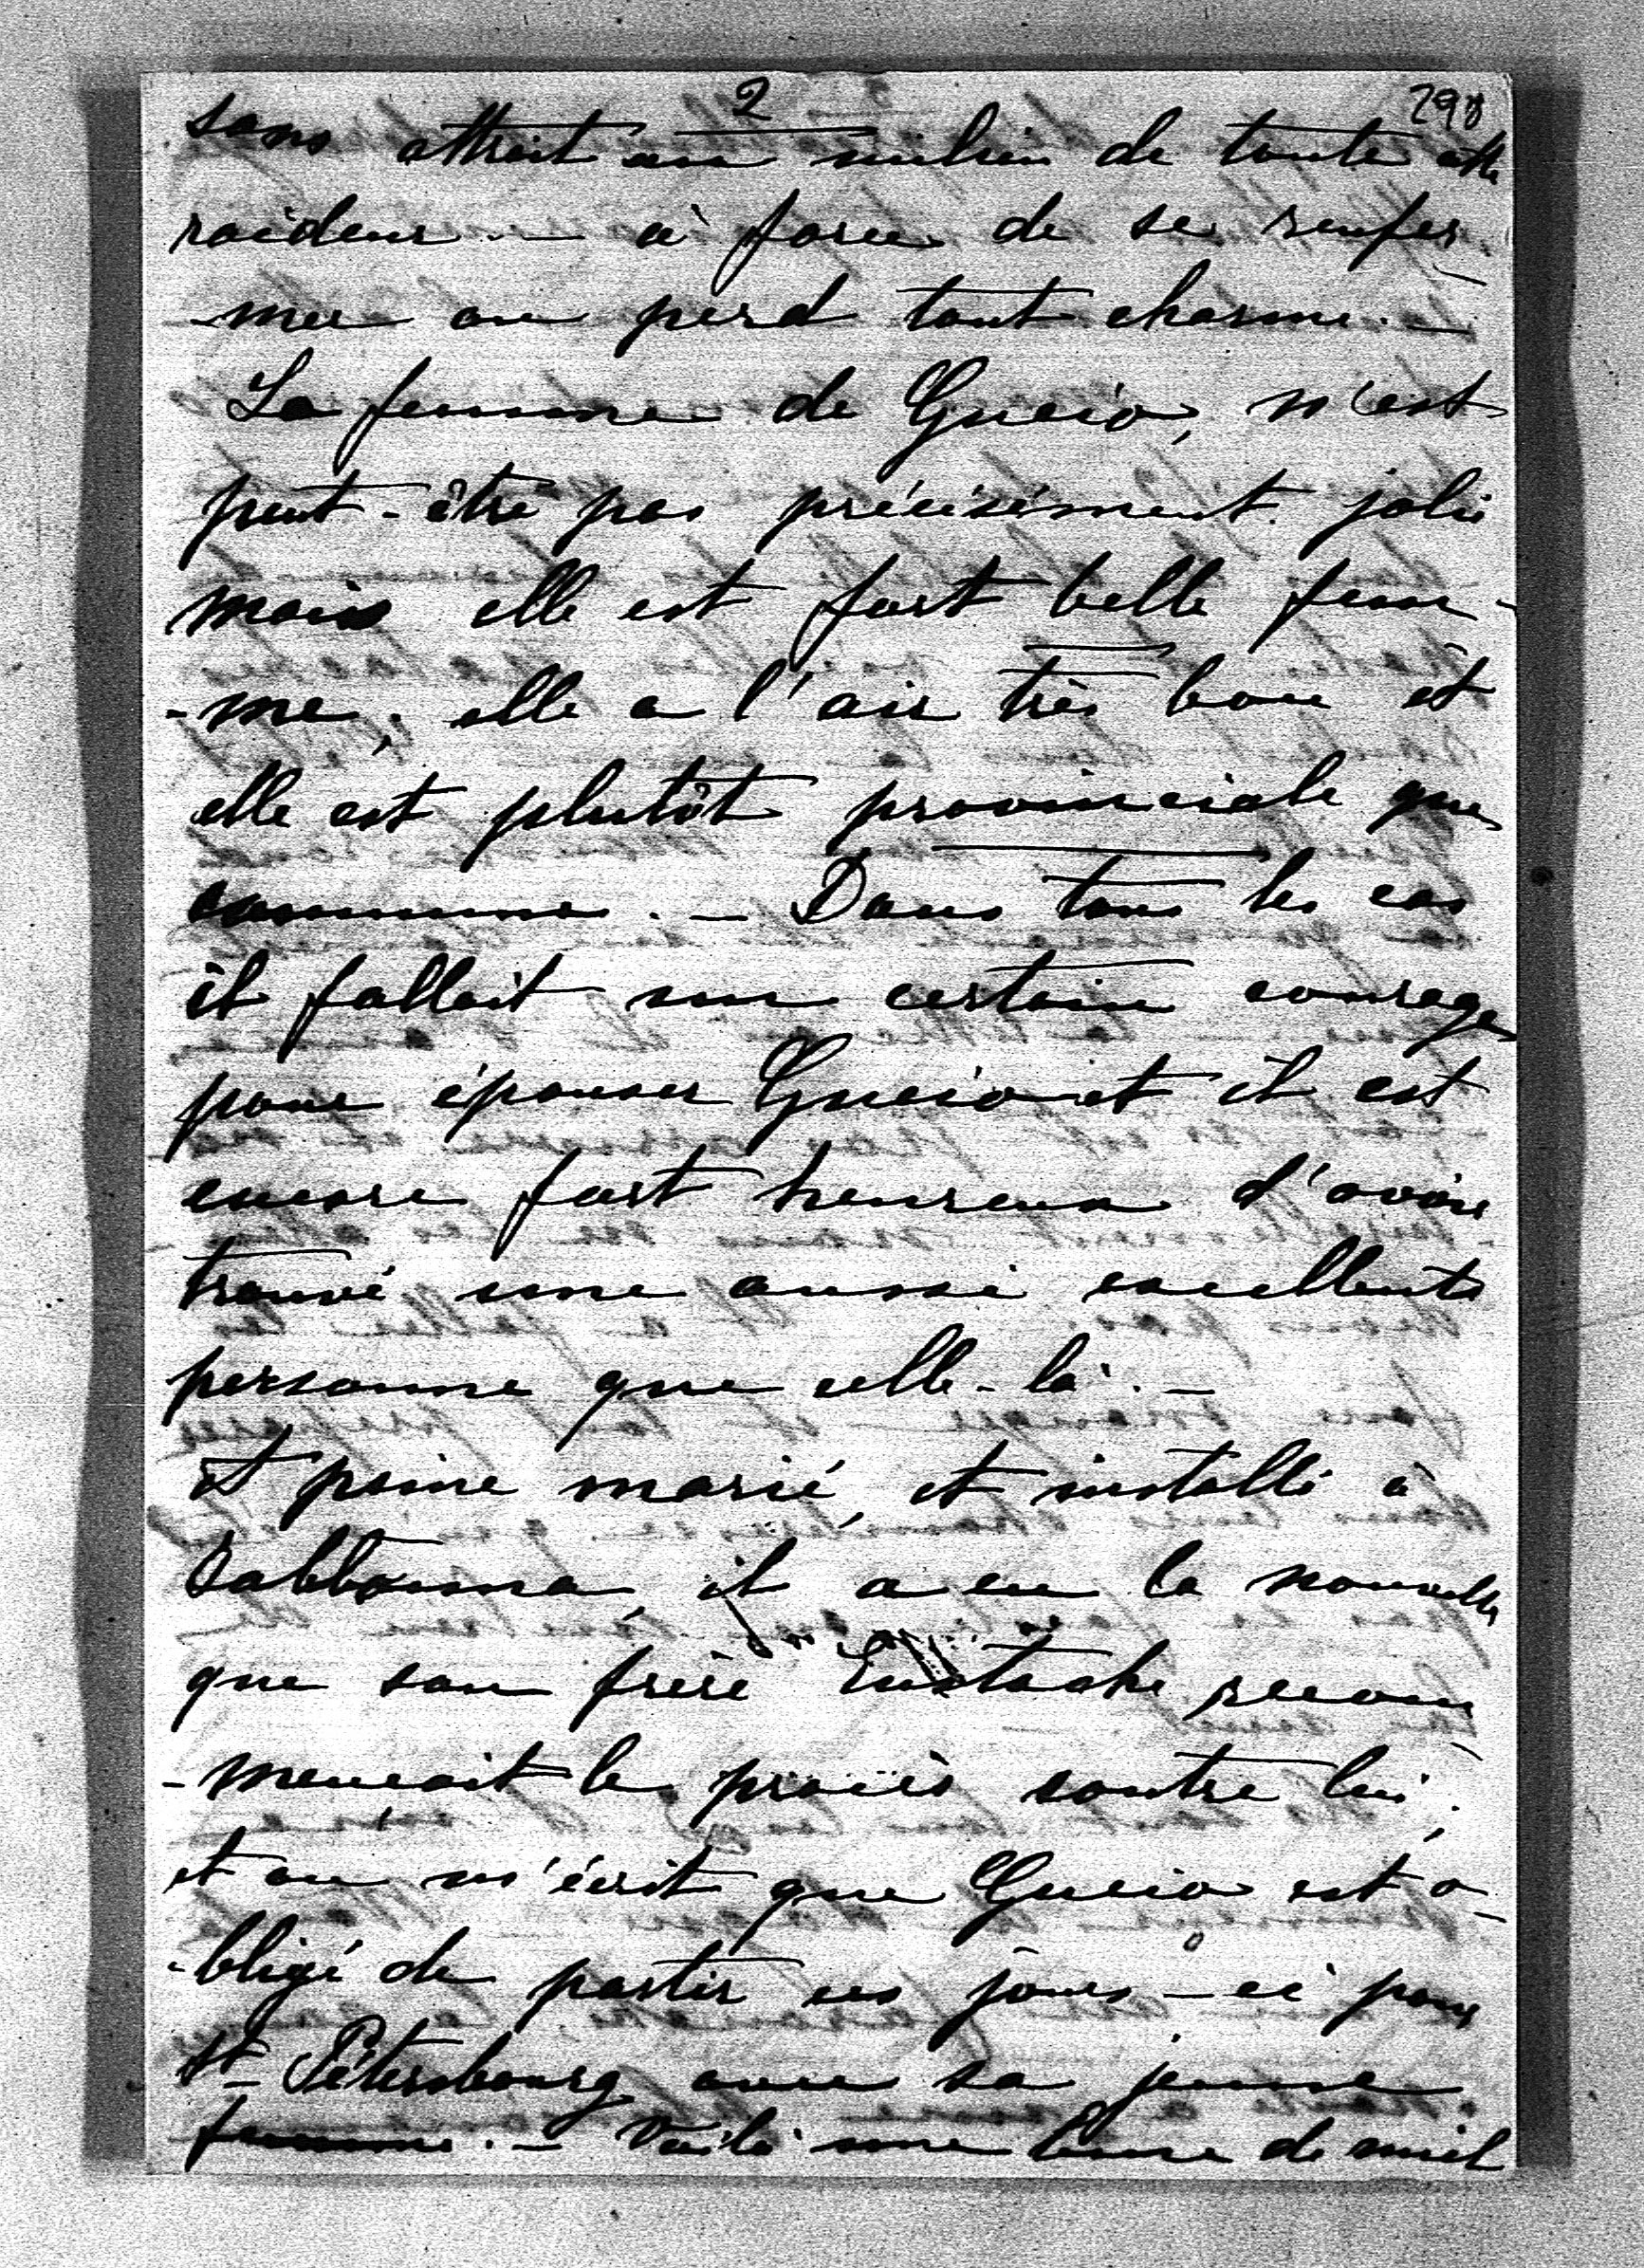 2
298
sans attrait au milieu de toute cette
raideur. — à force de se renfer-
-mer on perd tout charme. —
La femme de Gucio, n'est
peut-être pas précisément jolie
mais elle est fort belle fem-
-me, elle a l'air très bon et
elle est plutôt provinciale que
commune. — Dans tous les cas
il fallait un certain courage
pour épouser Gucio et il est
encore fort heureux d'avoir
trouvé une aussi excellente
personne que celle-là. —
et peine marié, et installé à
il a eu la nouvelle
que son frère Eustache recom
-mençait le procès contre lui,
et on m'écrit que Gucio est o-
-bligé de partir ces jours-ci pour
St-Pétersbourg avec sa jeune
femme. — Voilà une lune de miel